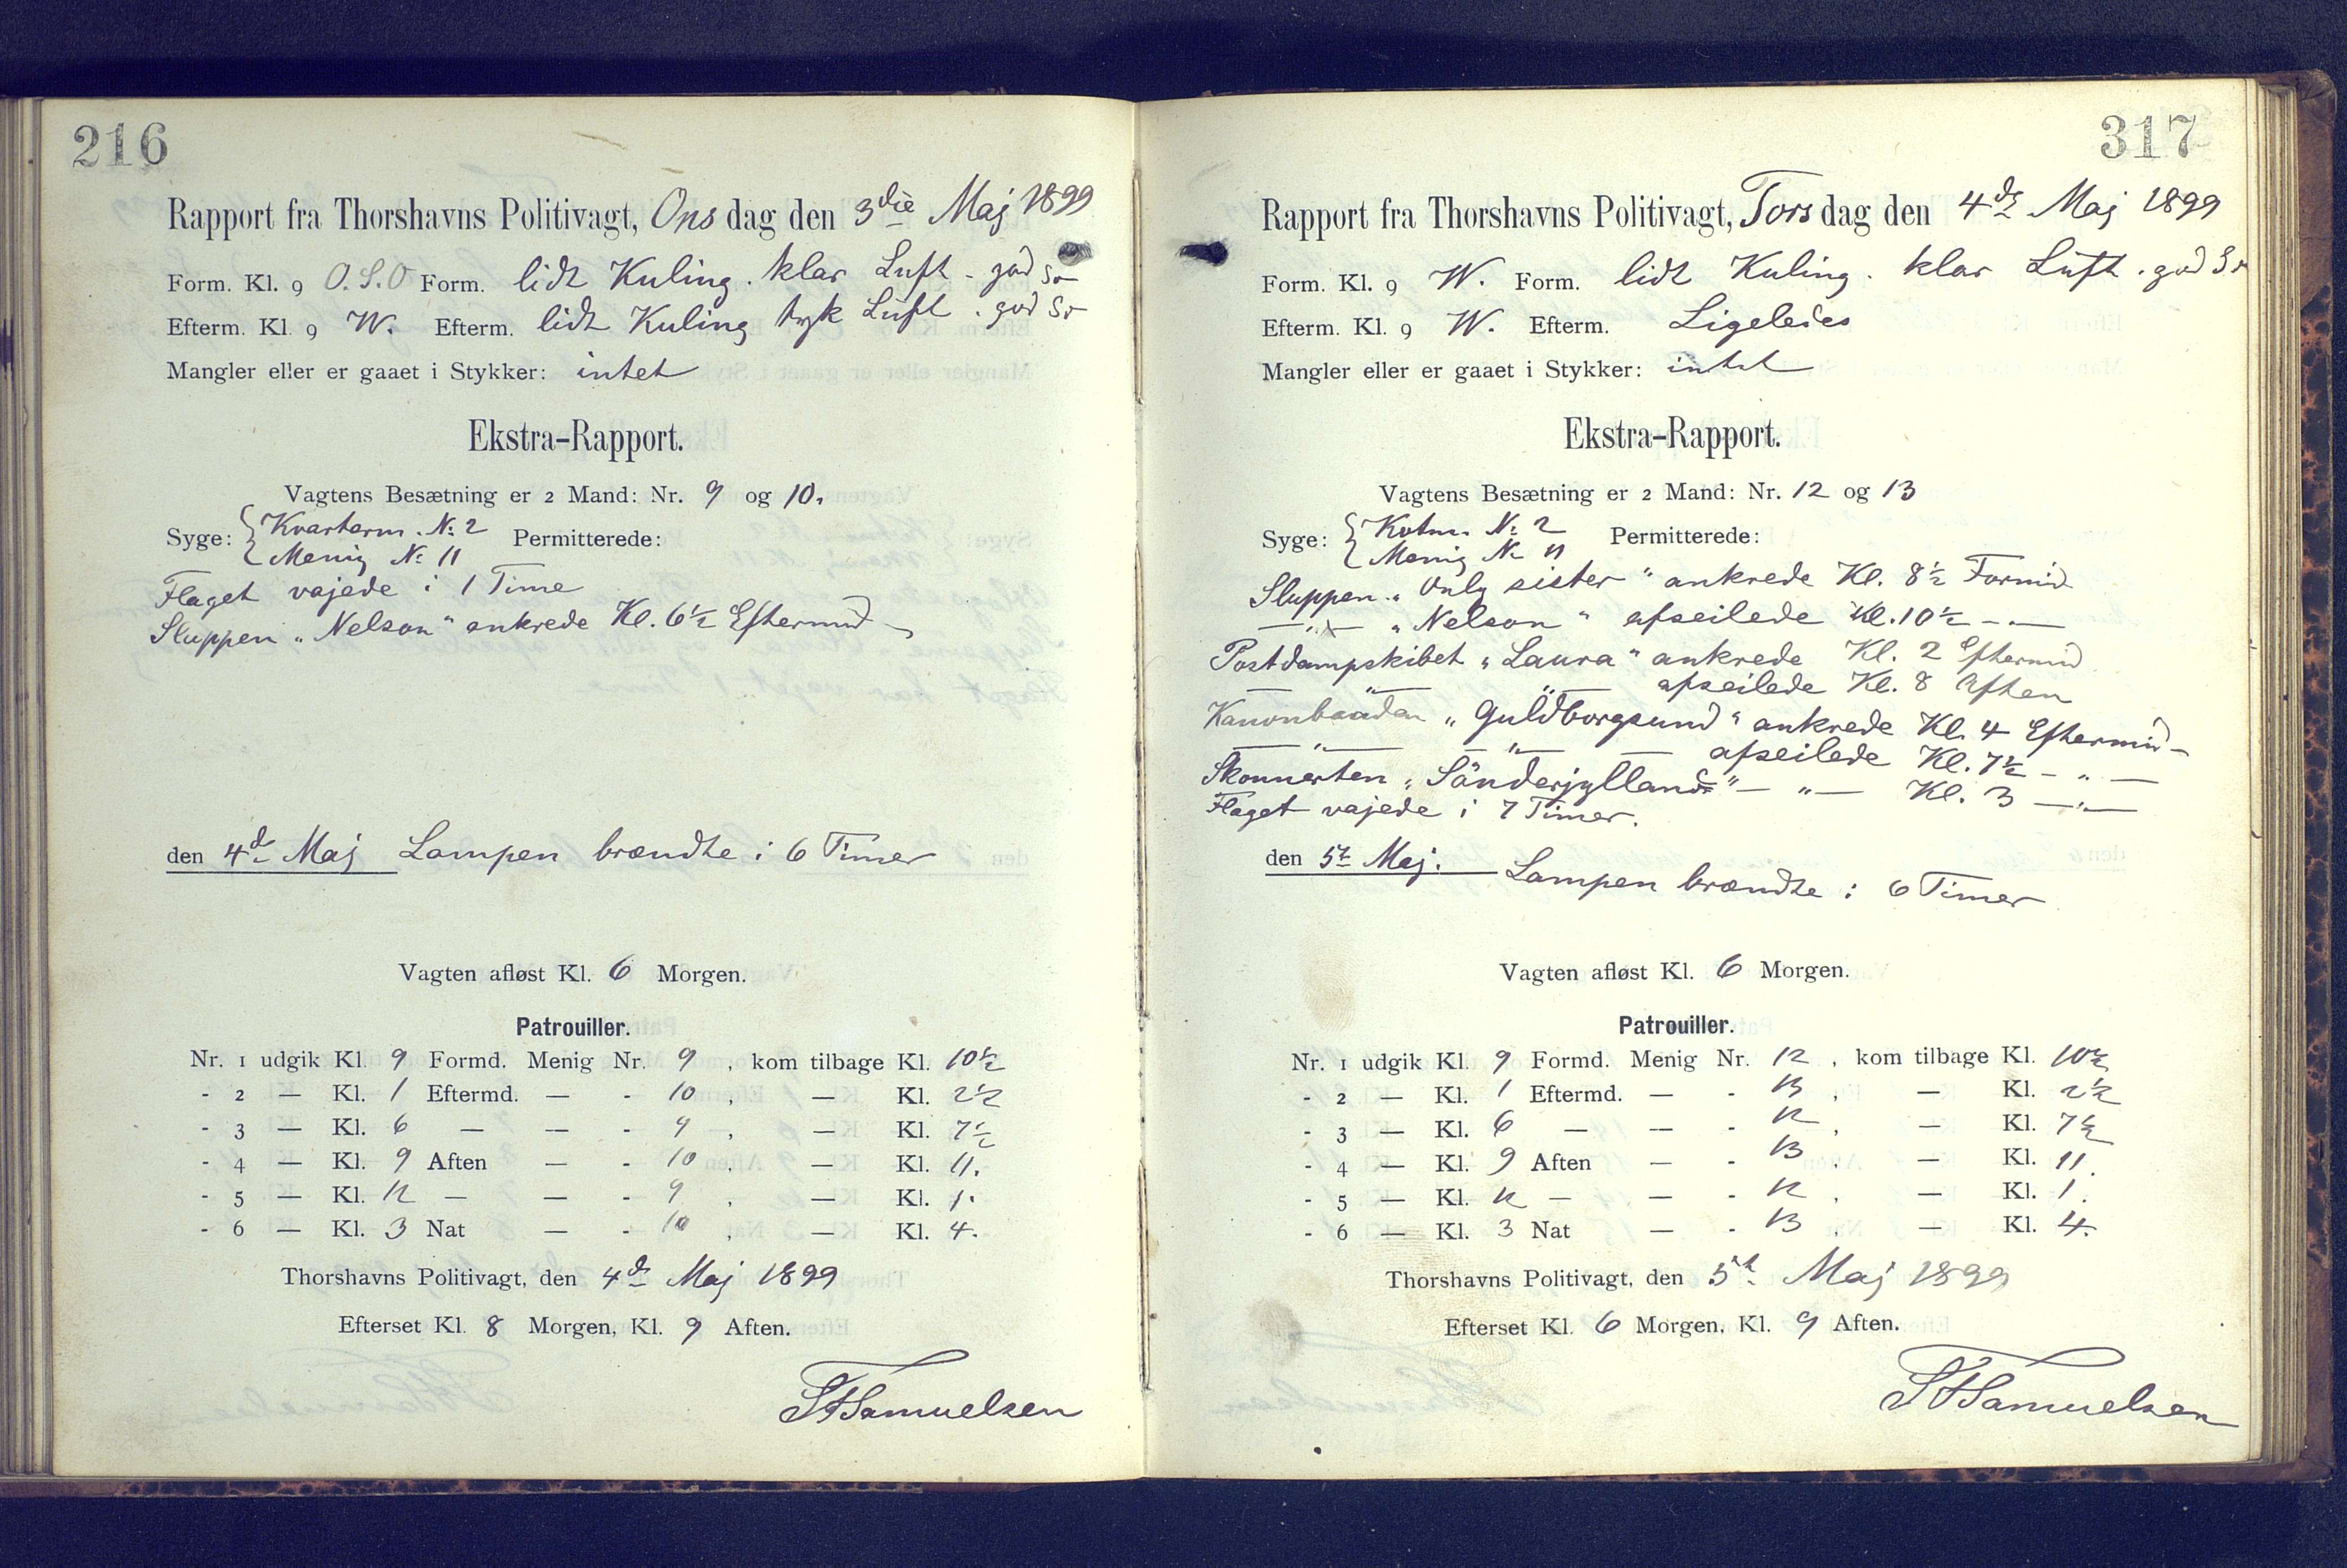 216
Rapport fra Thorshavns Politivagt, Onsdag den 3die Maj 1899
Form. Kl. 9 O.S.O Form. lidt Kuling. klar Luft. god Sø
Efterm. Kl. 9 W. Efterm. lidt Kuling tyk Luft. god Sø
Mangler eller er gaaet i Stykker: intet
Ekstra-Rapport.
Vagtens Besætning er 2 Mand: Nr. 9 og 10.
Syge: { Kvarterm. No 2 Permitterede:
Menig No 11
Flaget vajede i 1 Time
Sluppen „Nelson" ankrede Kl. 6½ Eftermid
den 4de Maj Lampen brændte i 6 Timer
Vagten afløst Kl. 6 Morgen.
Patrouiller.
Nr. 1 udgik Kl. 9 Formd. Menig Nr. 9, kom tilbage Kl. 10½
- 2 — Kl. 1 Eftermd. — - 10, — Kl. 2½
- 3 — Kl. 6 — — - 9, — Kl. 7½
- 4 — Kl. 9 Aften — - 10, — Kl. 11.
- 5 — Kl. 12 — — - 9, — Kl. 1.
- 6 — Kl. 3 Nat — - 10, — Kl. 4.
Thorshavns Politivagt, den 4de Maj 1899
Efterset Kl. 8 Morgen, Kl. 9 Aften.
Samuelsen
317
Rapport fra Thorshavns Politivagt, Torsdag den 4de Maj 1899
Form. Kl. 9 W. Form. lidt Kuling. klar Luft. god Sø
Efterm. Kl. 9 W. Efterm. Ligeledes
Mangler eller er gaaet i Stykker: intet
Ekstra-Rapport.
Vagtens Besætning er 2 Mand: Nr. 12 og 13
Syge: { Kvtm. No 2 Permitterede:
Menig No 11
Sluppen „Only sister" ankrede Kl. 8½ Formid
—"— „Nelson" afseilede Kl. 10½ — " —
Postdampskibet „Laura" ankrede Kl. 2 Eftermid
— " — " — afseilede Kl. 8 Aften
Kanonbaaden „Guldborgsund" ankrede Kl. 4 Eftermid
— " — — " — — afseilede Kl. 7½ — " —
Skonnerten „Sönderjylland" — " — Kl. 3 — " —
Flaget vajede i 7 Timer.
den 5te Maj. Lampen brændte i 6 Timer
Vagten afløst Kl. 6 Morgen.
Patrouiller.
Nr. 1 udgik Kl. 9 Formd. Menig Nr. 12, kom tilbage Kl. 10½
- 2 — Kl. 1 Eftermd. — - 13, — Kl. 2½
- 3 — Kl. 6 — — - 12, — Kl. 7½
- 4 — Kl. 9 Aften — - 13, — Kl. 11.
- 5 — Kl. 12 — — - 12, — Kl. 1.
- 6 — Kl. 3 Nat — - 13, — Kl. 4.
Thorshavns Politivagt, den 5te Maj 1899
Efterset Kl. 6 Morgen, Kl. 9 Aften.
Samuelsen